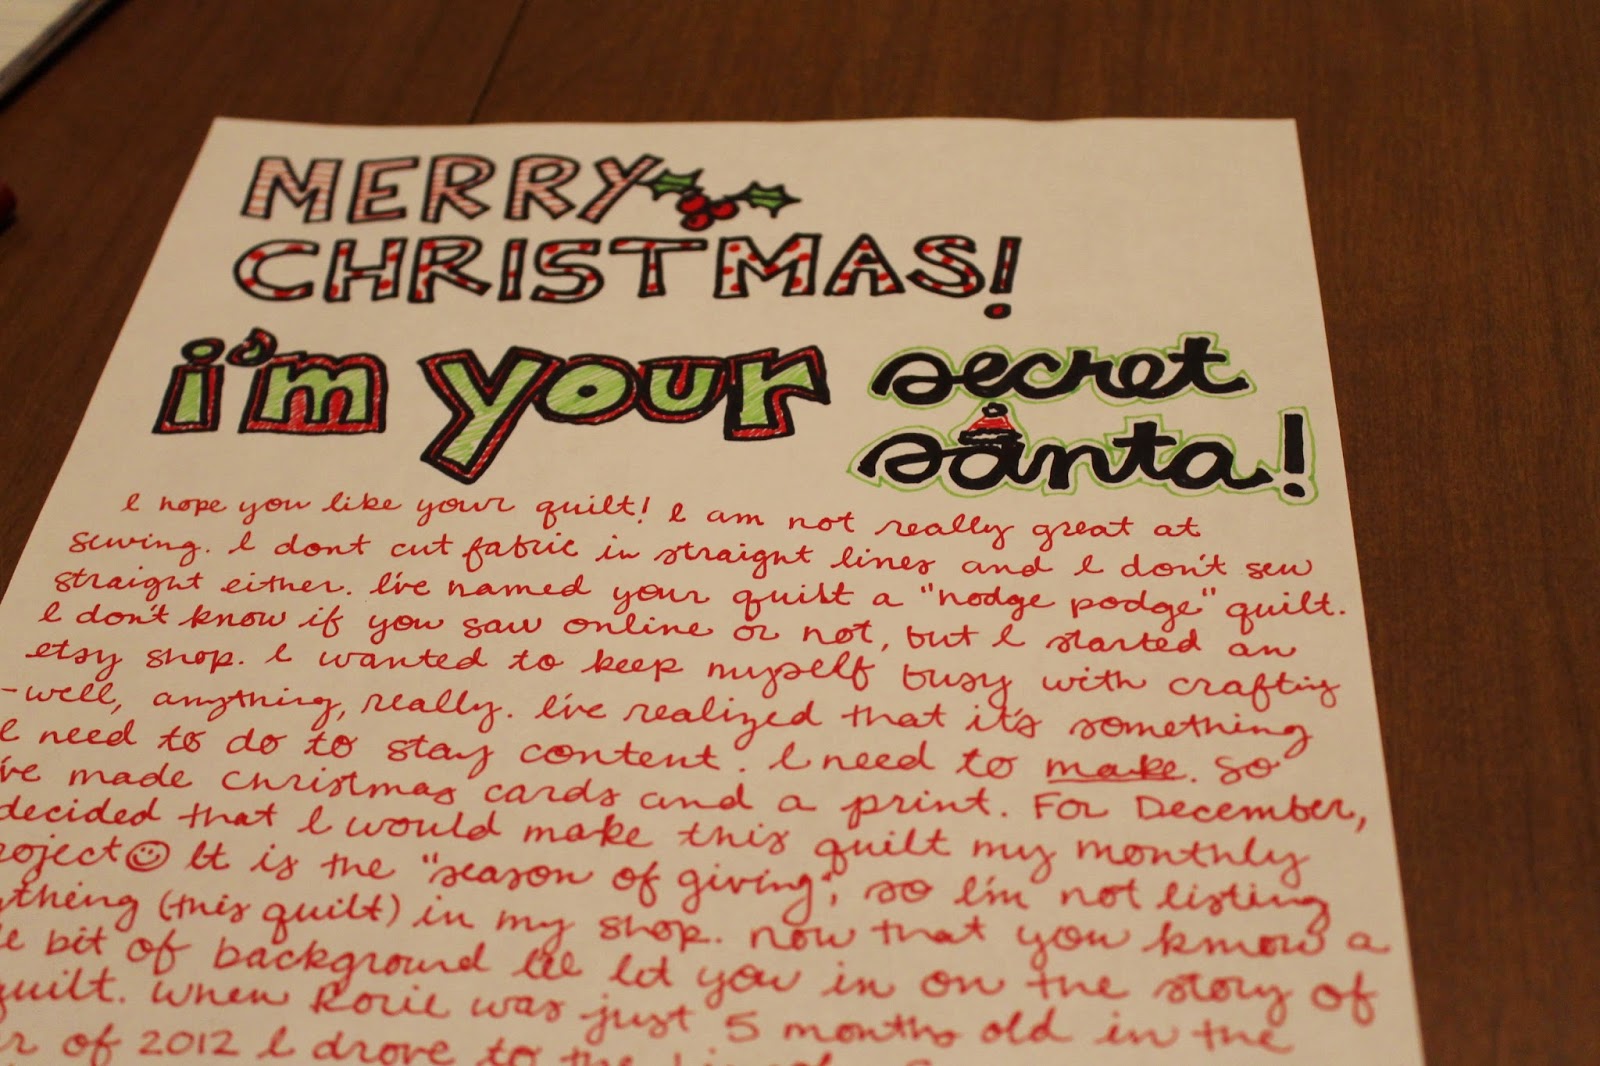 MERRY
CHRISTMAS!
i'm your secret
santa!
I hope you like your quilt! I am not really great at
sewing. I dont cut fabric in straight lines and I don't sew
straight either. I've named your quilt a "hodge podge" quilt.
I don't know if you saw online or not, but I started an
etsy shop. I wanted to keep myself busy with crafting
-well, anything, really. I've realized that it's something
I need to do to stay content. I need to make. So
I've made Christmas cards and a print. For December,
decided that I would make this quilt my monthly
roject☺ It is the "season of giving", so I'm not listing
ything (this quilt) in my shop. now that you know a
le bit of background I'll let you in on the story of
quilt. When Rosie was just 5 months old in the
r of 2012 I drove to the